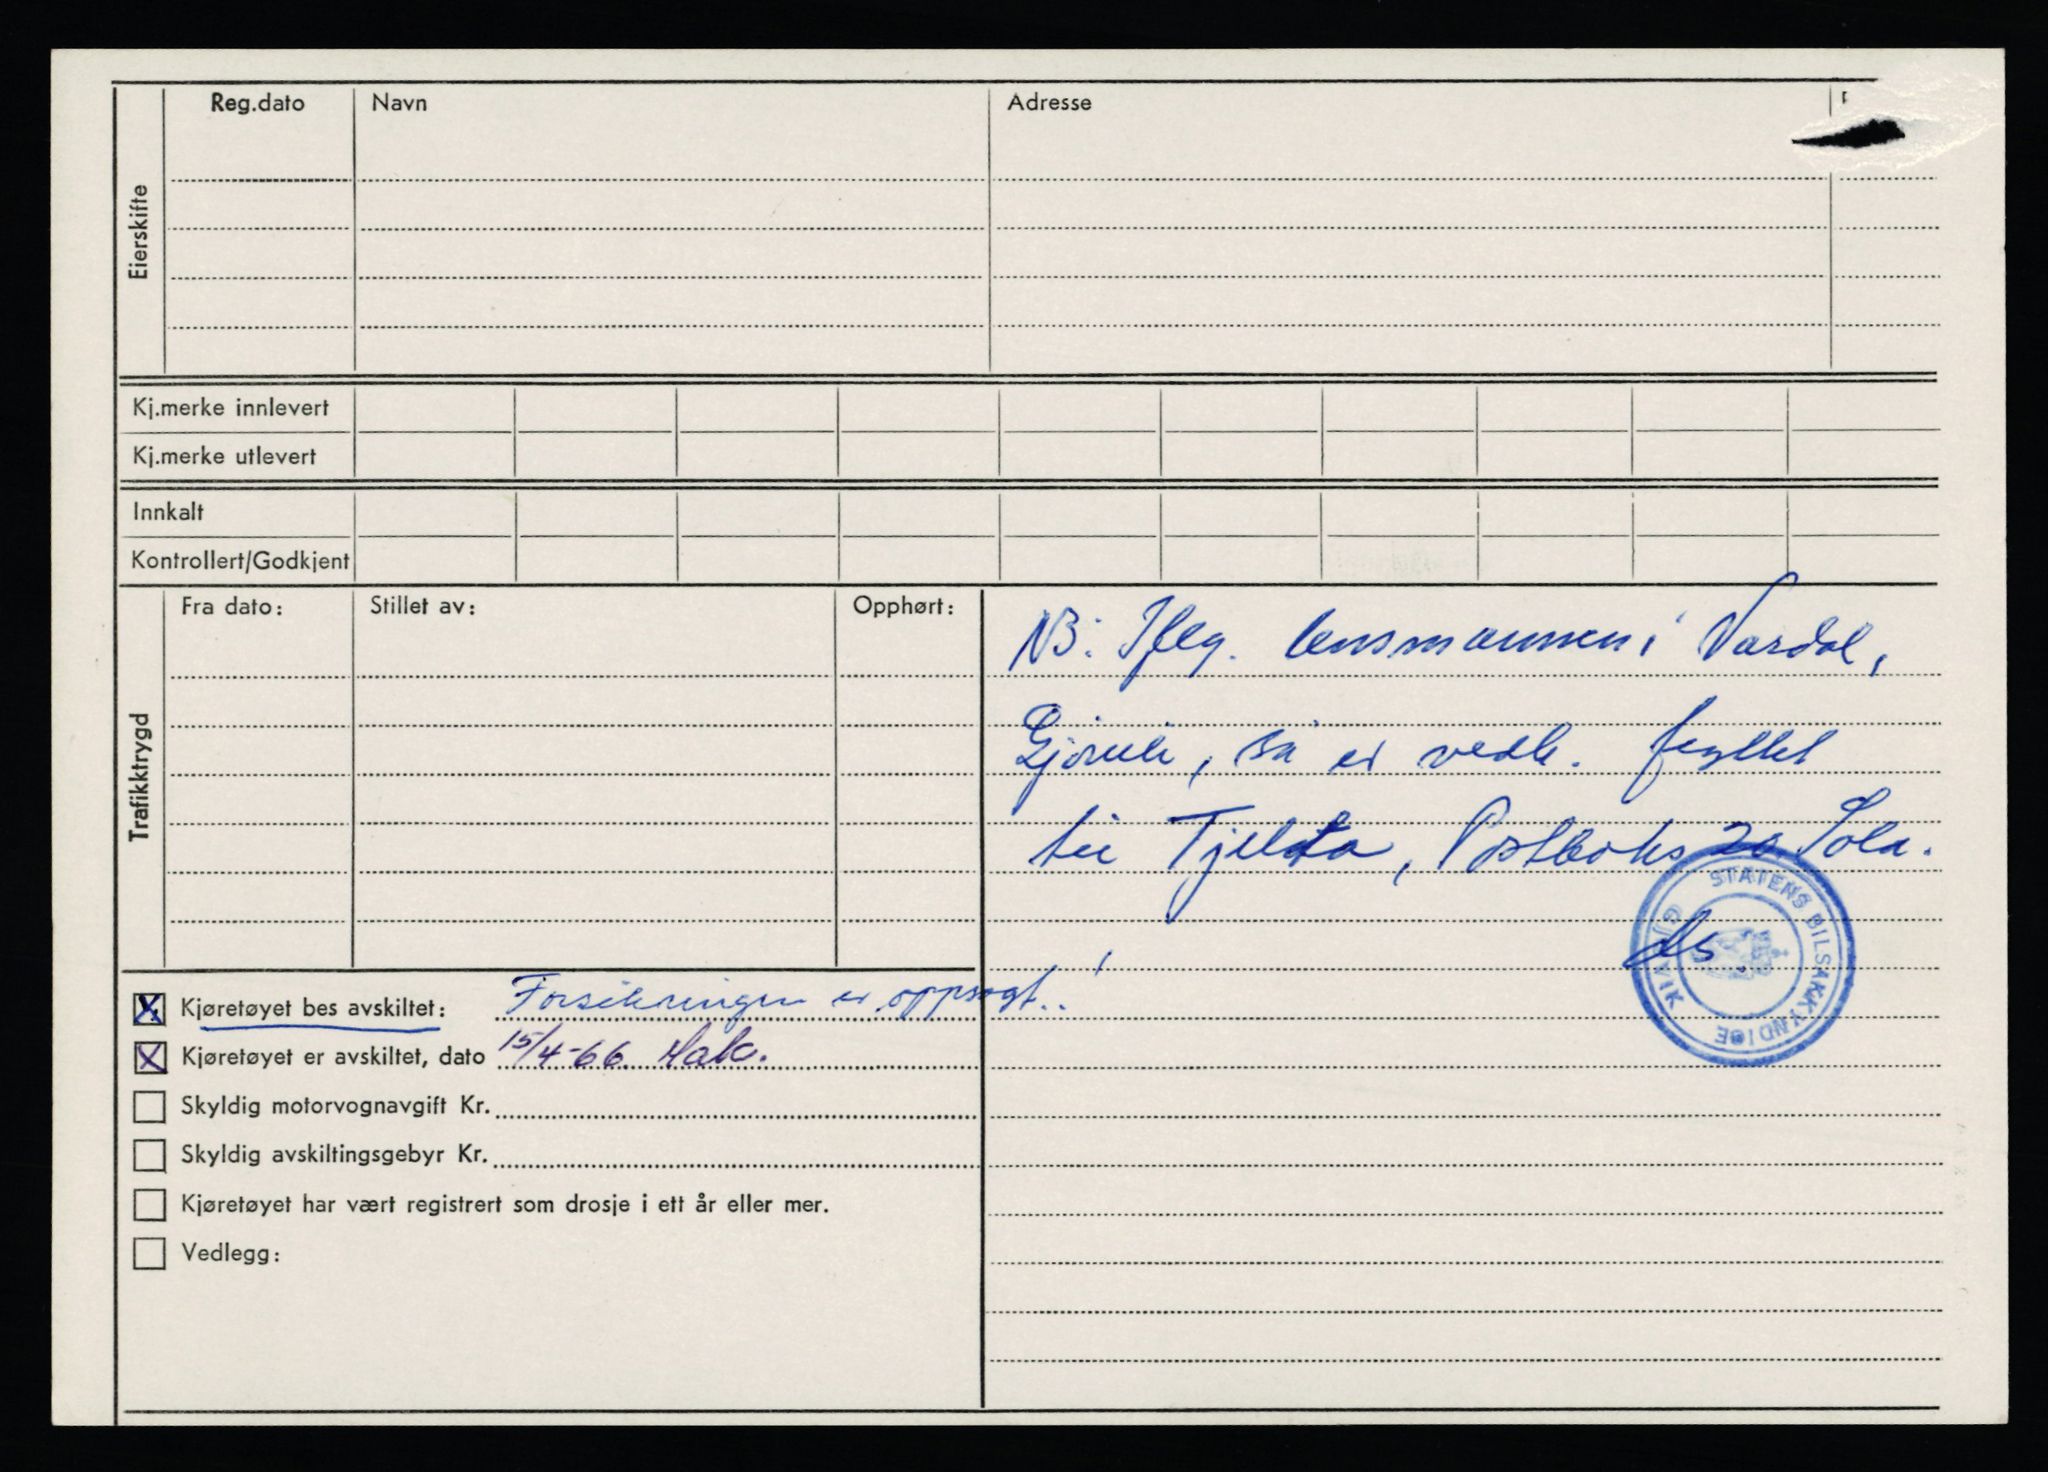 Reg.dato Navn Adresse
Eierskifte
Kj.merke innlevert
Kj.merke utlevert
Innkalt
Kontrollert/Godkjent
Fra dato: Stillet av: Opphørt:
Trafikktrygd
NB: Ifleg. lensmannen i Vardal,
Gjøvik, så er vedk. flyttet
til Tjelta, Postboks 20, Sola.
STATENS BILSAKKYNDIGE
GJØVIK
Kjøretøyet bes avskiltet: Forsikringen er oppsagt..!
Kjøretøyet er avskiltet, dato 15/4-66.
Skyldig motorvognavgift Kr.
Skyldig avskiltingsgebyr Kr.
Kjøretøyet har vært registrert som drosje i ett år eller mer.
Vedlegg: